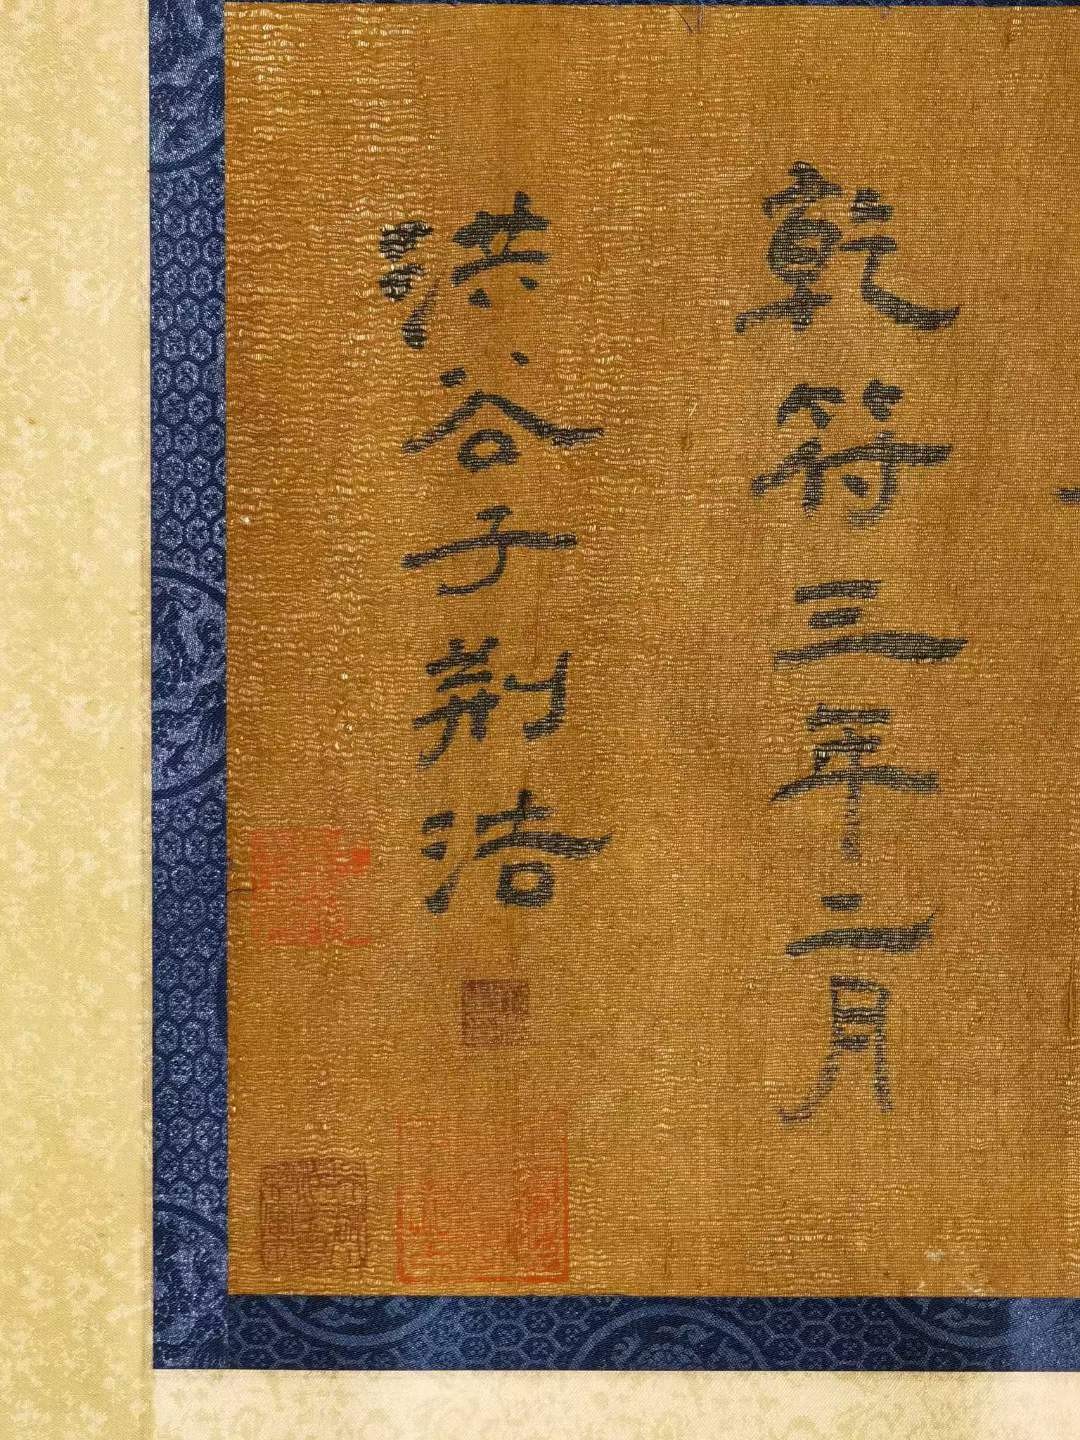 乾符三年二月
洪谷子荆浩